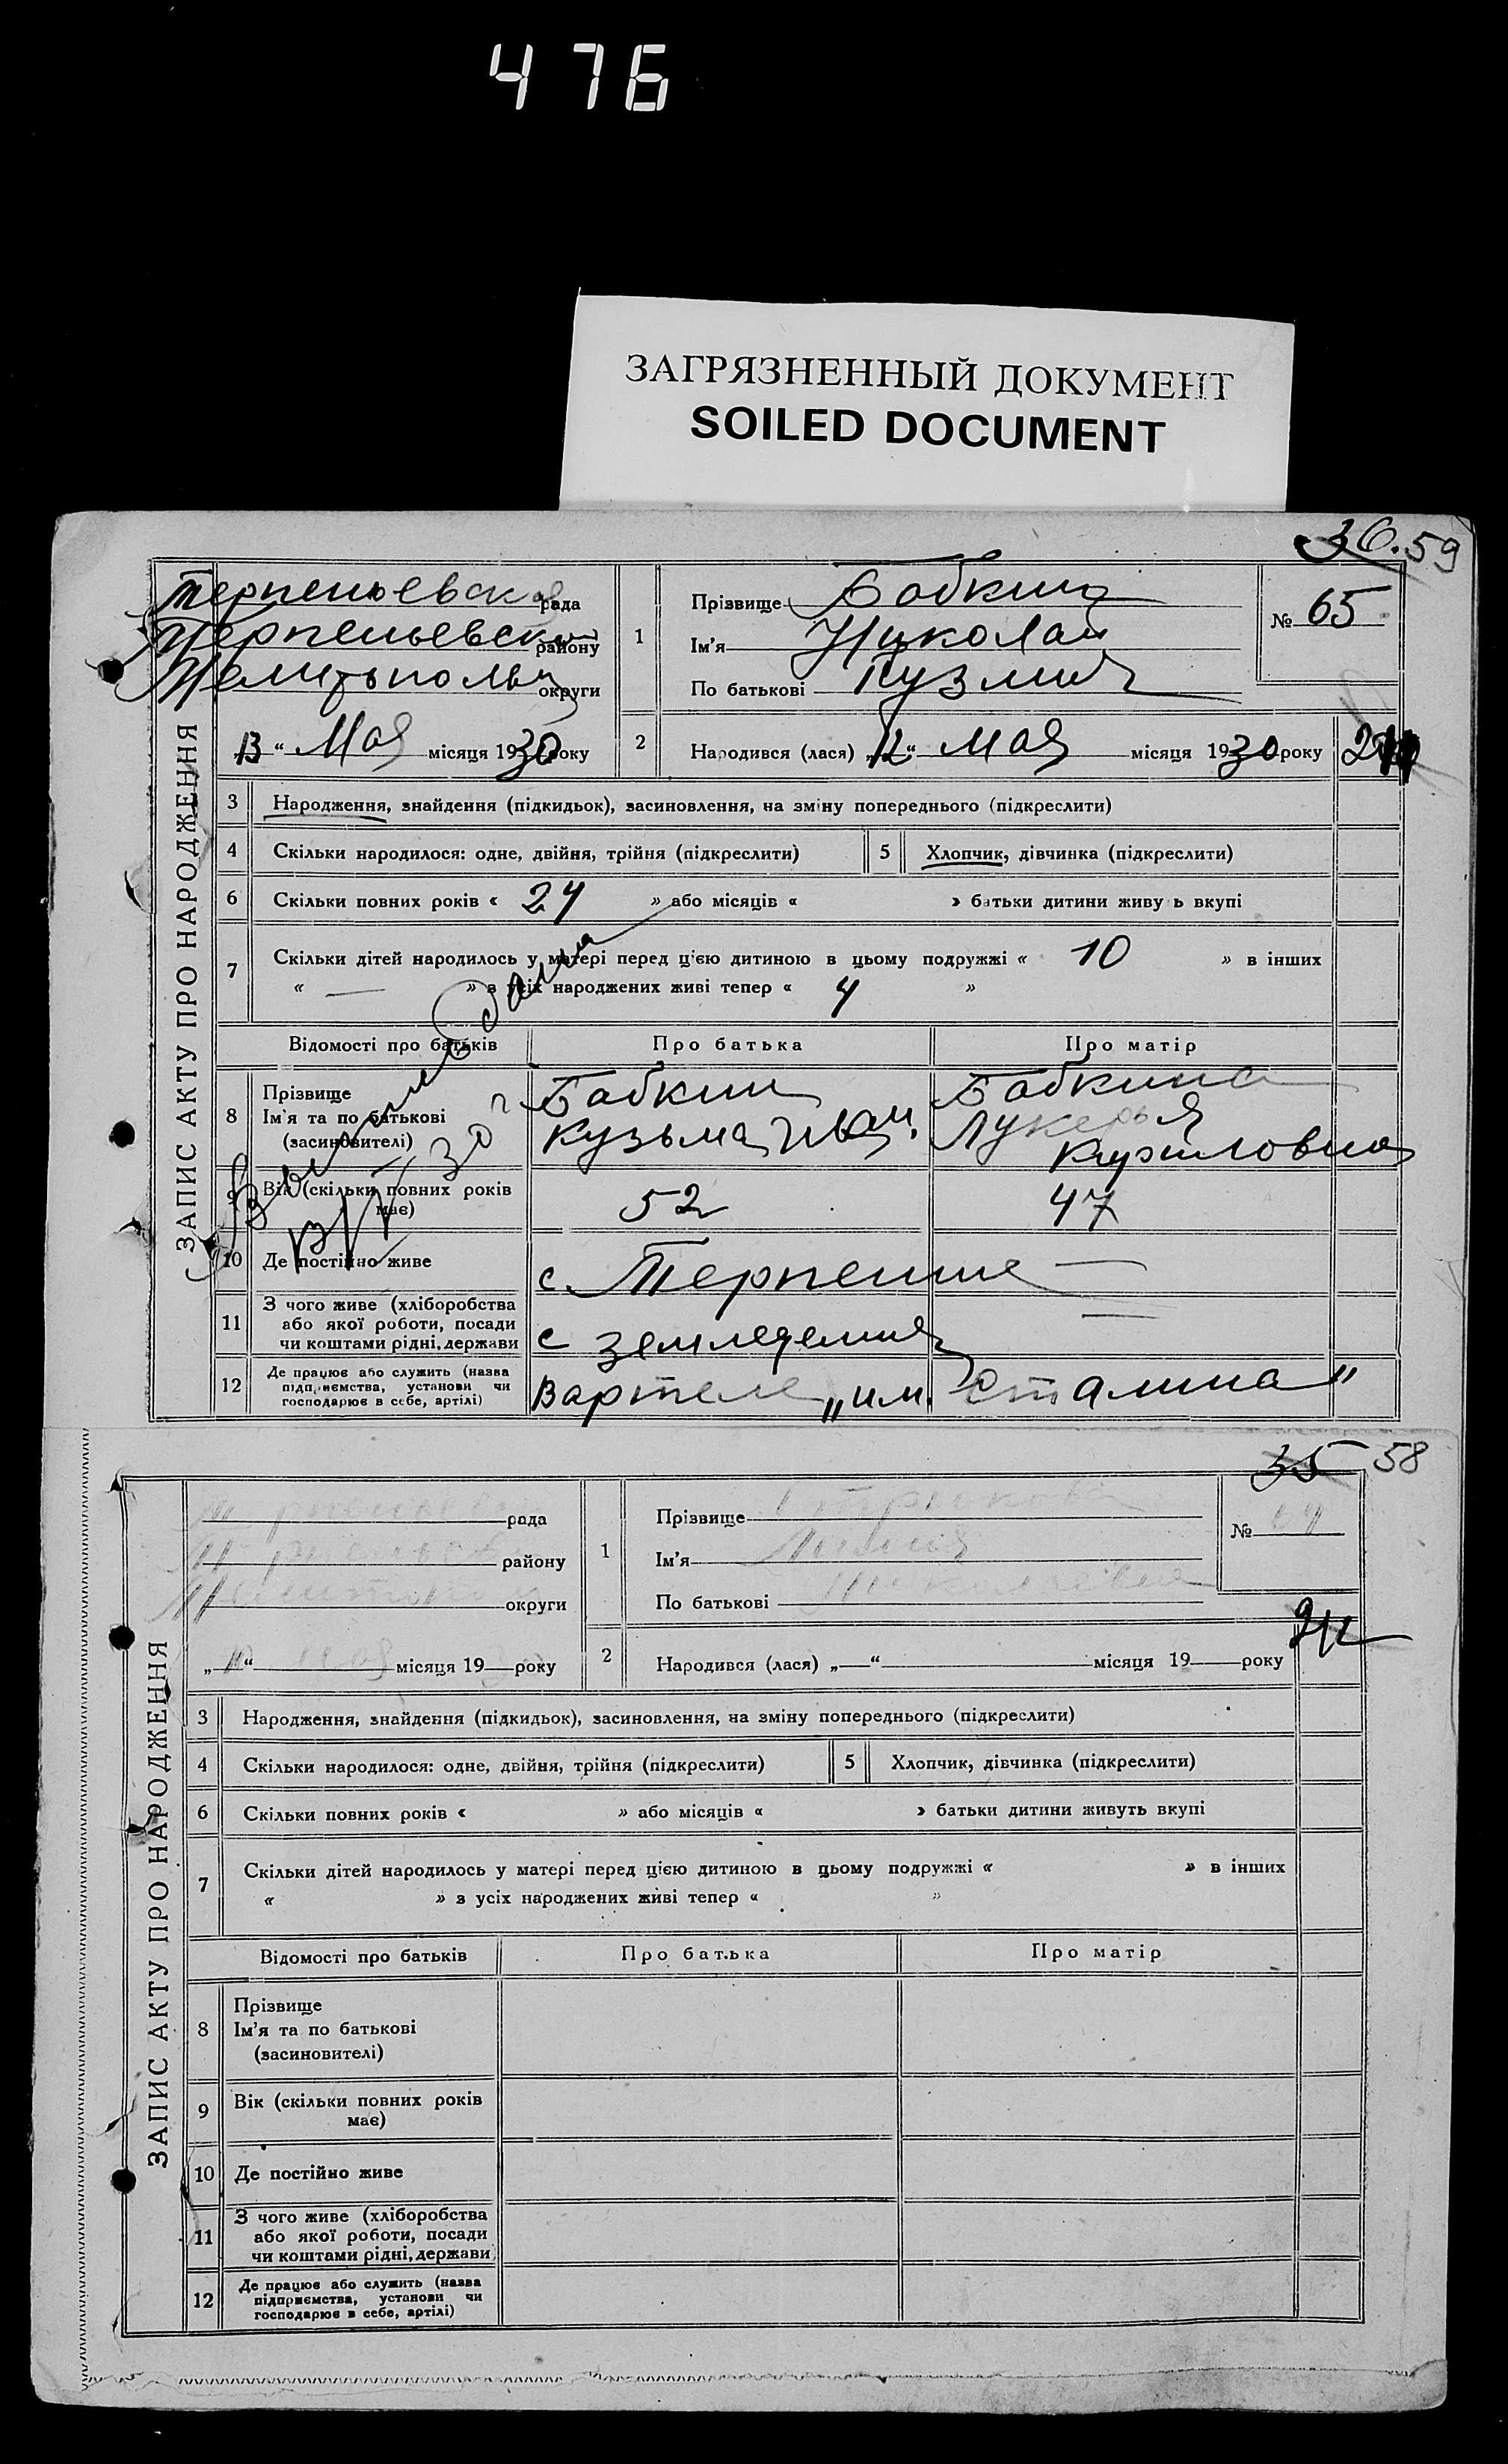 476
ЗАГРЯЗНЕННЫЙ ДОКУМЕНТ
SOILED DOCUMENT
36. 59
ЗАПИС АКТУ ПРО НАРОДЖЕННЯ
Терпеньевская рада
Терпеньевский району
округи
„13“ Мая місяця 1930 року
1
Прізвище Бабкин
Ім'я Николай
По батькові Кузмич
№ 65
2 Народився (лася) „12“ мая місяця 1930 року
3 Народження, знайдення (підкидьок), засиновлення, на зміну попереднього (підкреслити)
4 Скільки народилося: одне, двійня, трійня (підкреслити) 5 Хлопчик, дівчинка (підкреслити)
6 Скільки повних років « 24 » або місяців « » батьки дитини живу ь вкупі
7 Скільки дітей народилось у матері перед цією дитиною в цьому подружжі « 10 » в інших
« — » з усіх народжених живі тепер « 4 »
Відомості про батьків Про батька Про матір
8 Прізвище
Ім'я та по батькові
(засиновителі)
Бабкин
Кузьма Иван.
Бабкина
Лукерья
Кирилловна
9 Вік (скільки повних років має) 52 47
10 Де постійно живе с. Терпение —
11 З чого живе (хліборобства
або якої роботи, посади
чи коштами рідні, держави
с земледелия
12 Де працює або служить (назва
підприємства, установи чи
господарює в себе, артілі)
В артеле „им. Сталина"
35 58
ЗАПИС АКТУ ПРО НАРОДЖЕННЯ
рада
району
округи
„11“ мая місяця 19 року
1
Прізвище
Ім'я
По батькові
№ 64
2 Народився (лася) „ “ місяця 19 року
3 Народження, знайдення (підкидьок), засиновлення, на зміну попереднього (підкреслити)
4 Скільки народилося: одне, двійня, трійня (підкреслити) 5 Хлопчик, дівчинка (підкреслити)
6 Скільки повних років « » або місяців « » батьки дитини живуть вкупі
7 Скільки дітей народилось у матері перед цією дитиною в цьому подружжі « » в інших
« » з усіх народжених живі тепер « »
Відомості про батьків Про батька Про матір
8 Прізвище
Ім'я та по батькові
(засиновителі)
9 Вік (скільки повних років
має)
10 Де постійно живе
11 З чого живе (хліборобства
або якої роботи, посади
чи коштами рідні, держави
12 Де працює або служить (назва
підприємства, установи чи
господарює в себе, артілі)